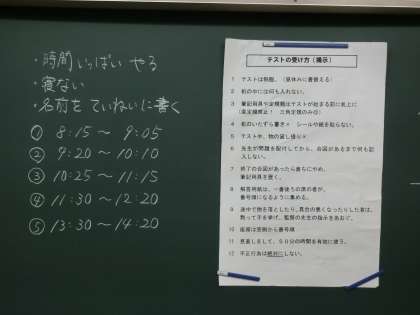 ・時間いっぱいやる
・寝ない
・名前をていねいに書く
① 8:15〜9:05
② 9:20〜10:10
③ 10:25〜11:15
④ 11:30〜12:20
⑤ 13:30〜14:20
テストの受け方（掲示）
1 テストは制服。
2 机の中には何も入れない。
3 筆記用具や定規類はテストが始まる前に机上に
三角定規のみ可）
4 机のいたずら書き× シールや紙を貼らない。
5 テスト中、物の貸し借り×
6 先生が問題を配付してから、合図があるまで何も記
入しない。
7 終了の合図があったら直ちにやめ、
筆記用具を置く。
8 解答用紙は、一番後ろの席の者が、
番号順になるように集める。
9 途中で物を落としたり、具合の悪くなったりした者は、
黙って手を挙げ、監督の先生の指示をあおぐ。
10 座席は窓側から番号順
11 見直しをして、５０分の時間を有効に使う。
12 不正行為は絶対にしない。